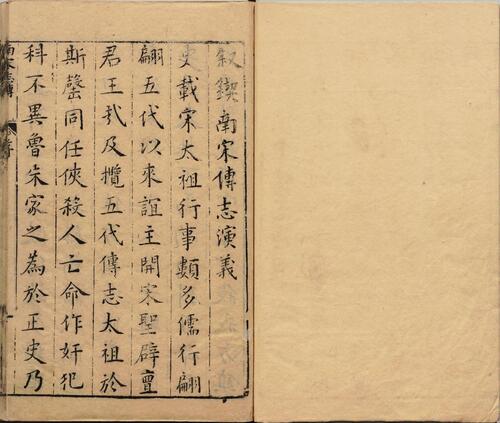 叙鍥南宋傳志演義
史載宋太祖行事類多儒行翩
翩五代以來誼主開宋聖辟亶
君王㢤及攬五代傳志太祖於
斯罄同任俠殺人亡命作奸犯
科不異魯朱家之為於正史乃
南宋志傳
序